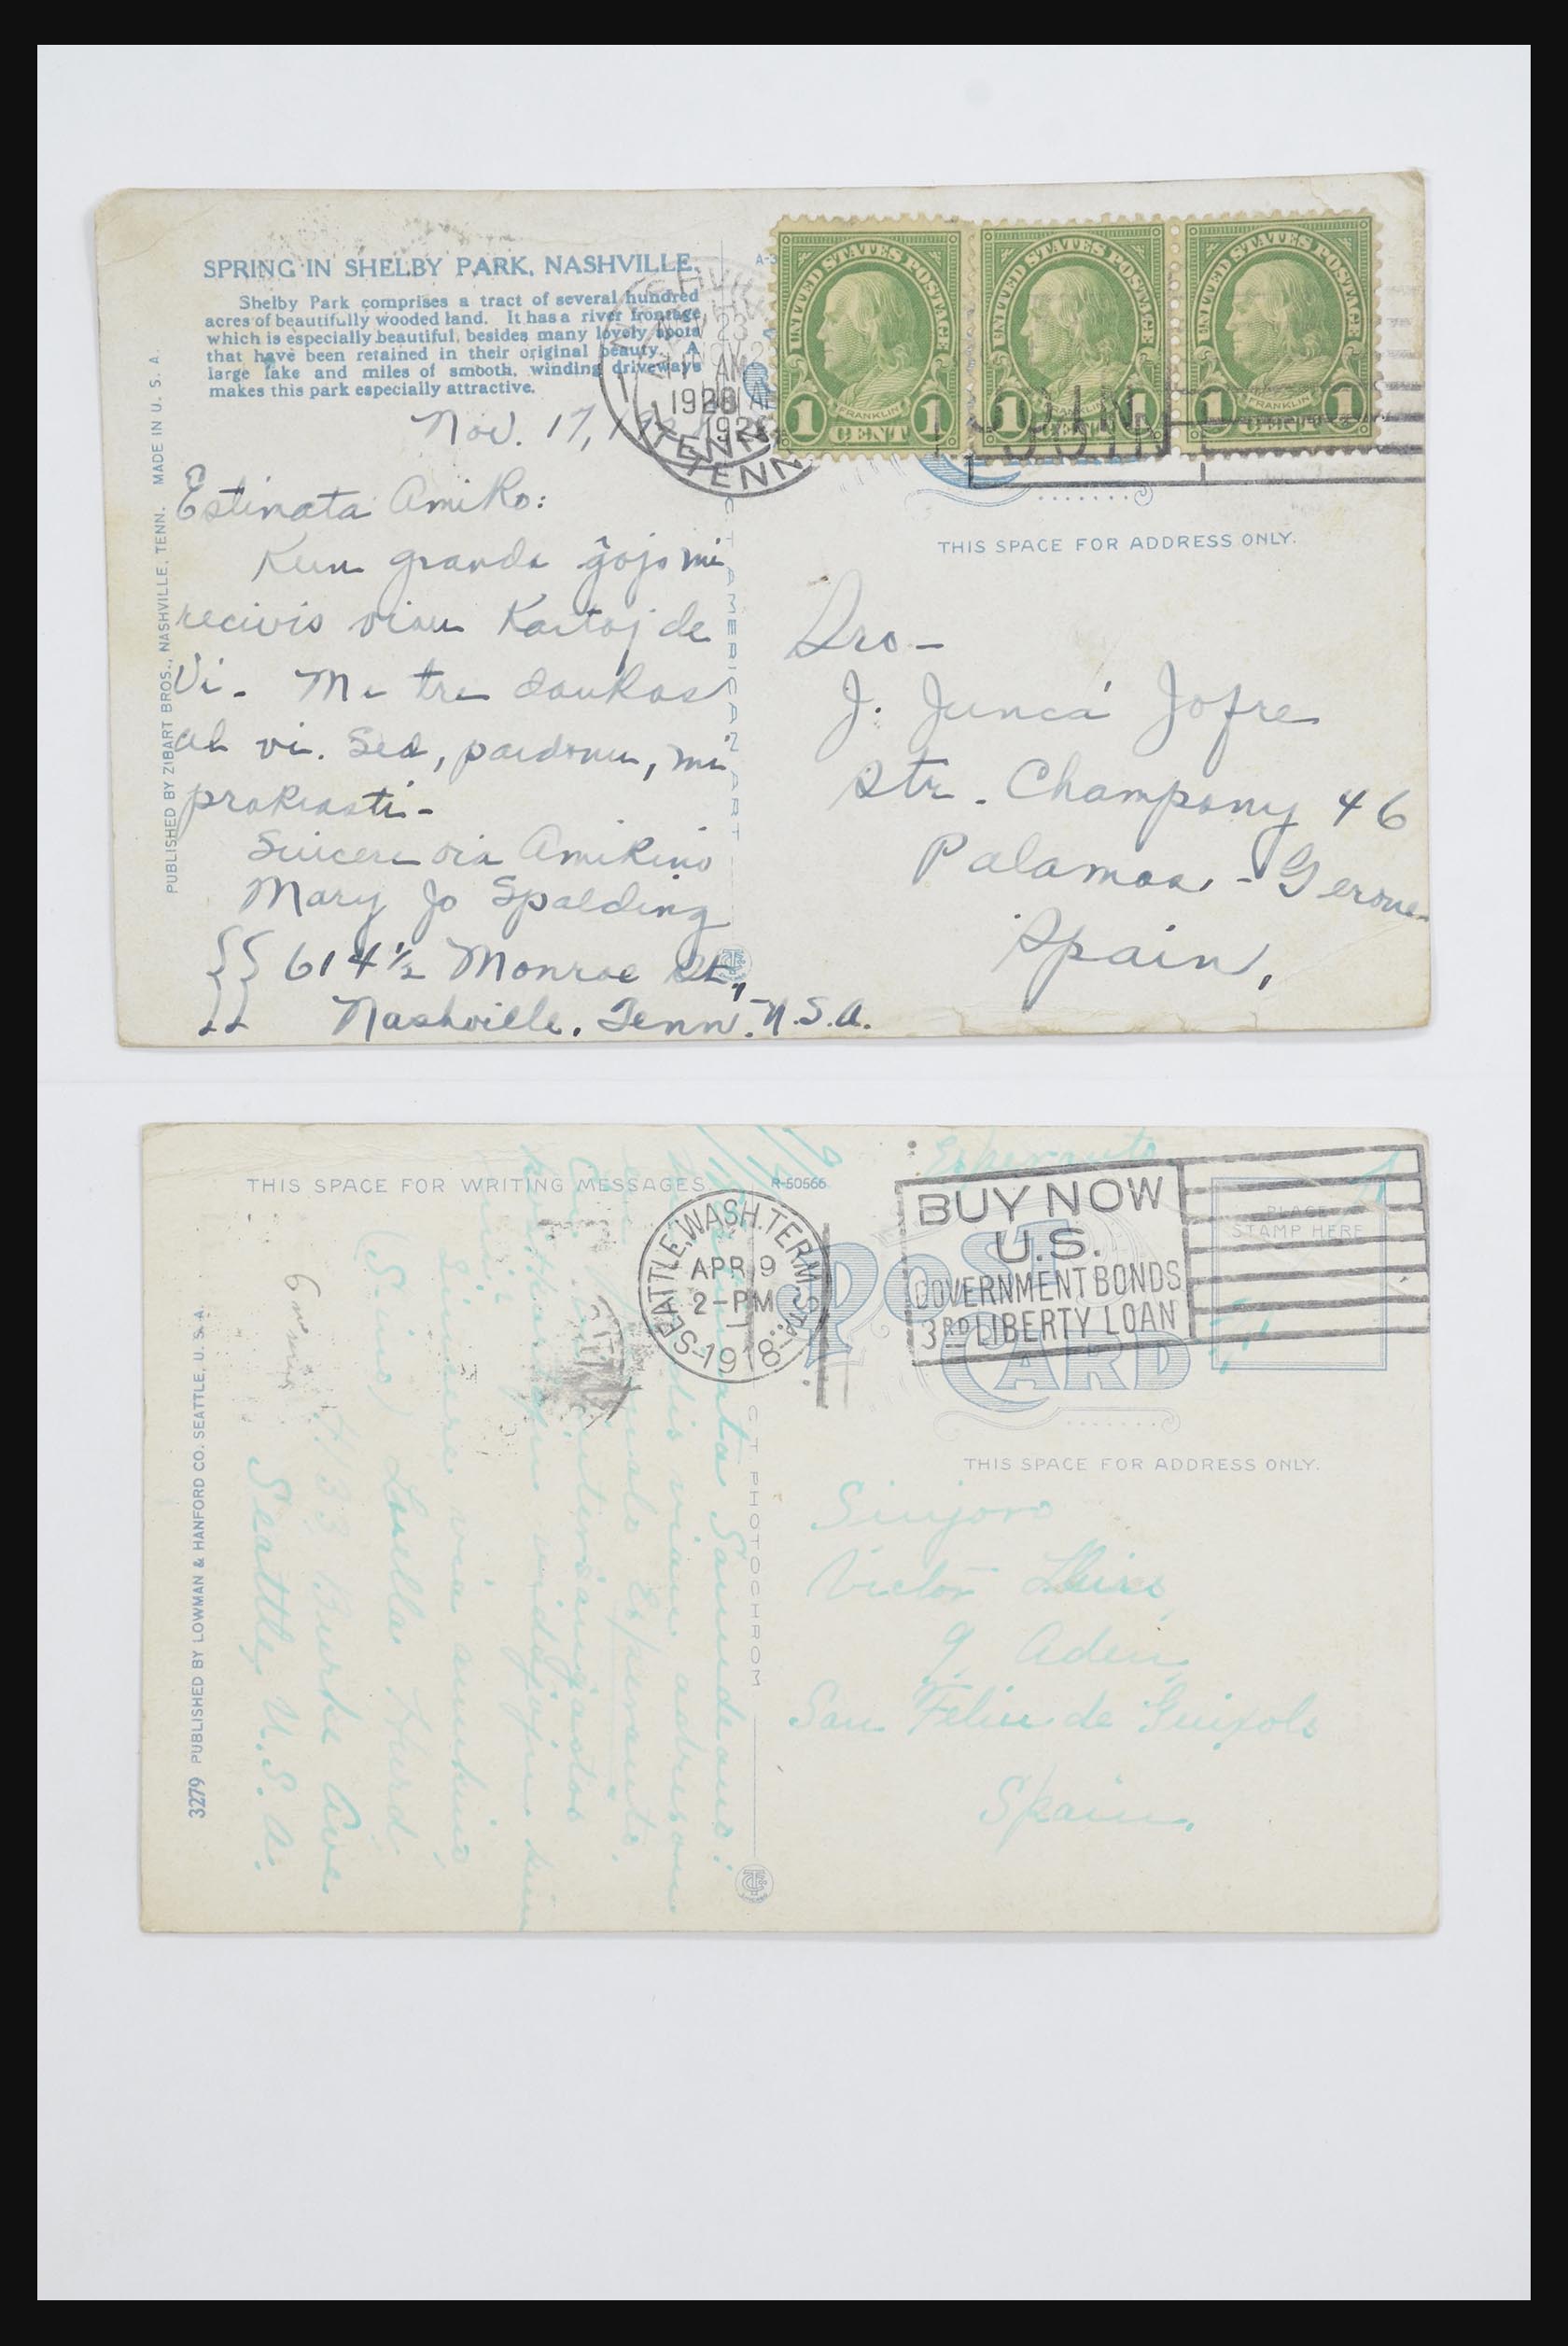 SPRING IN SHELBY PARK, NASHVILLE.
Shelby Park comprises a tract of several hundred
acres of beautifully wooded land. It has a river frontage
which is especially beautiful, besides many lovely spots
that have been retained in their original beauty. A
large lake and miles of smooth, winding driveways
makes this park especially attractive.
PUBLISHED BY ZIBART BROS., NASHVILLE, TENN. MADE IN U. S. A.
Nov. 17,
Estinata Amiko:
Kun granda ĝojo mi
recivis vian Kartoj de
Vi. Mi tre dankas
al vi. Sed, pardonu, mi
prokrasti-
Sincere via Amikino
Mary Jo Spalding
614½ Monroe St,
Nashville, Tenn. U.S.A.
C. T. AMERICAN ART
23
11 AM
1928
TENN
TENN
UNITED STATES POSTAGE
FRANKLIN
1 CENT 1
UNITED STATES POSTAGE
FRANKLIN
1 1
UNITED STATES POSTAGE
FRANKLIN
1 1
JOIN
JOIN
THIS SPACE FOR ADDRESS ONLY.
Sro-
J. Juncá Jofre
Str. Champony 46
Palamos, - Gerona
Spain,
THIS SPACE FOR WRITING MESSAGES.
R-50566
Esperanto
SEATTLE, WASH. TERM. STA.
APR 9
2-PM
1918
BUY NOW
U.S.
GOVERNMENT BONDS
3RD LIBERTY LOAN
PLACE
STAMP HERE
POST
CARD
THIS SPACE FOR ADDRESS ONLY.
Sinjoro
Victor
9 Aden
San Feliu de Guixols
Spain.
C. T. PHOTOCHROM
3279 PUBLISHED BY LOWMAN & HANFORD CO. SEATTLE, U. S. A.
vian adreson
Esperanto.
kun
Sincere via amikino
(S-ino) Louella Hurd.
Burke Ave
Seattle, U.S.A.